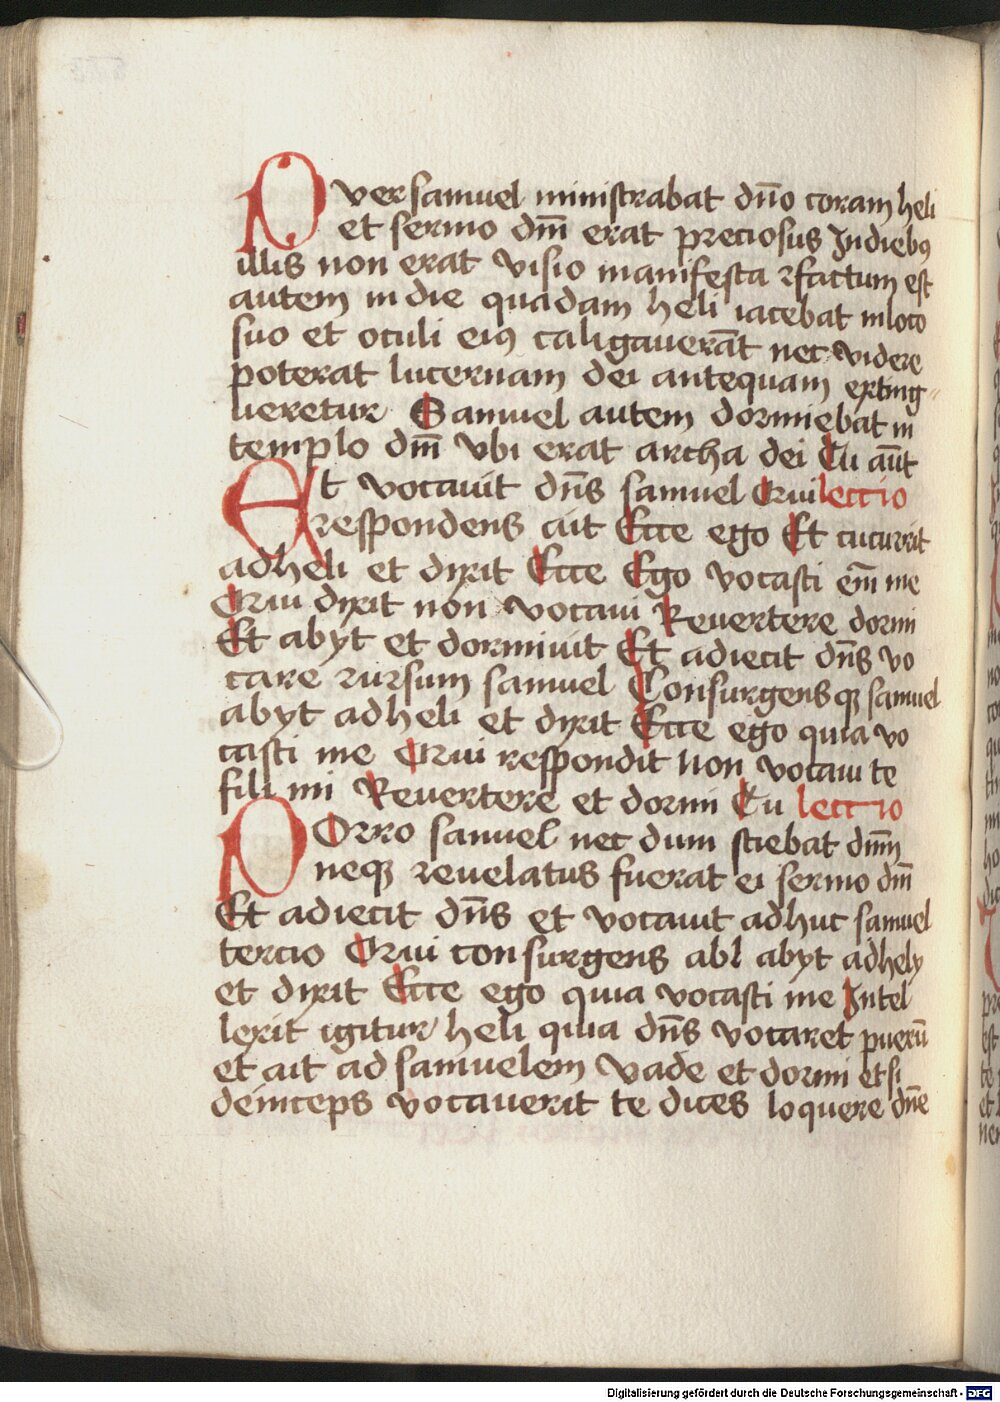 Puer samuel ministrabat dn̄o coram heli
et sermo dm̄ erat preciosus In diebꝰ
illis non erat visio manifesta ⁊ factum est
autem in die quadam heli iacebat in loco
suo et oculi eiꝰ caligauerāt nec videre
poterat lucernam dei antequam exting
ueretur Samuel autem dormiebat in
templo dm̄ vbi erat archa dei Tu aūt
Et vocavit dn̄s samuel Qui lectio
respondens ait Ecce ego Et cucurrit
ad heli et dixit Ecce Ego vocasti em̄ me
Qui dixit non vocaui Reuertere dormi
Et abyt et dormiuit Et adiecit dn̄s vo
care rursum samuel Consurgensqꝫ samuel
abyt ad heli et dixit Ecce ego quia vo
casti me Qui respondit Non vocaui te
fili mi Reuertere et dormi Tu lectio
POrro samuel nec dum sciebat dm̄
neqꝫ reuelatus fuerat ei sermo dm̄
Et adiecit dn̄s et vocauit adhuc samuel
tercio Qui consurgens abl abyt ad hely
et dixit Ecce ego quia vocasti me Intel
lexit igitur heli quia dn̄s vocaret puerū
et ait ad samuelem vade et dormi et si
deinceps vocauerit te dices loquere dn̄e
Digitalisierung gefördert durch die Deutsche Forschungsgemeinschaft - DFG